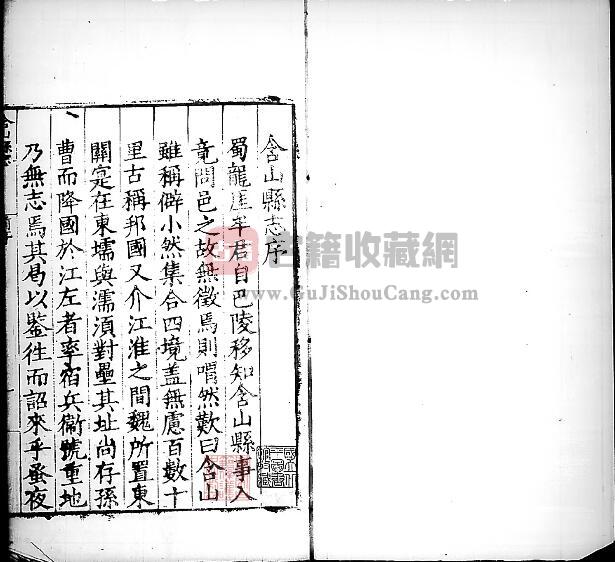 含山縣志序
蜀龍崖牟君自巴陵移知含山縣事入
竟問邑之故無徵焉則喟然歎曰含山
雖稱僻小然集合四境盖無慮百數十
里古稱邦國又介江淮之間魏所置東
關寔在東壖與濡須對壘其址尚存孫
曹而降國於江左者率宿兵衞號重地
乃無志焉其曷以鑒徃而詔來乎蚤夜
古籍收藏网
www.GuJiShouCang.com